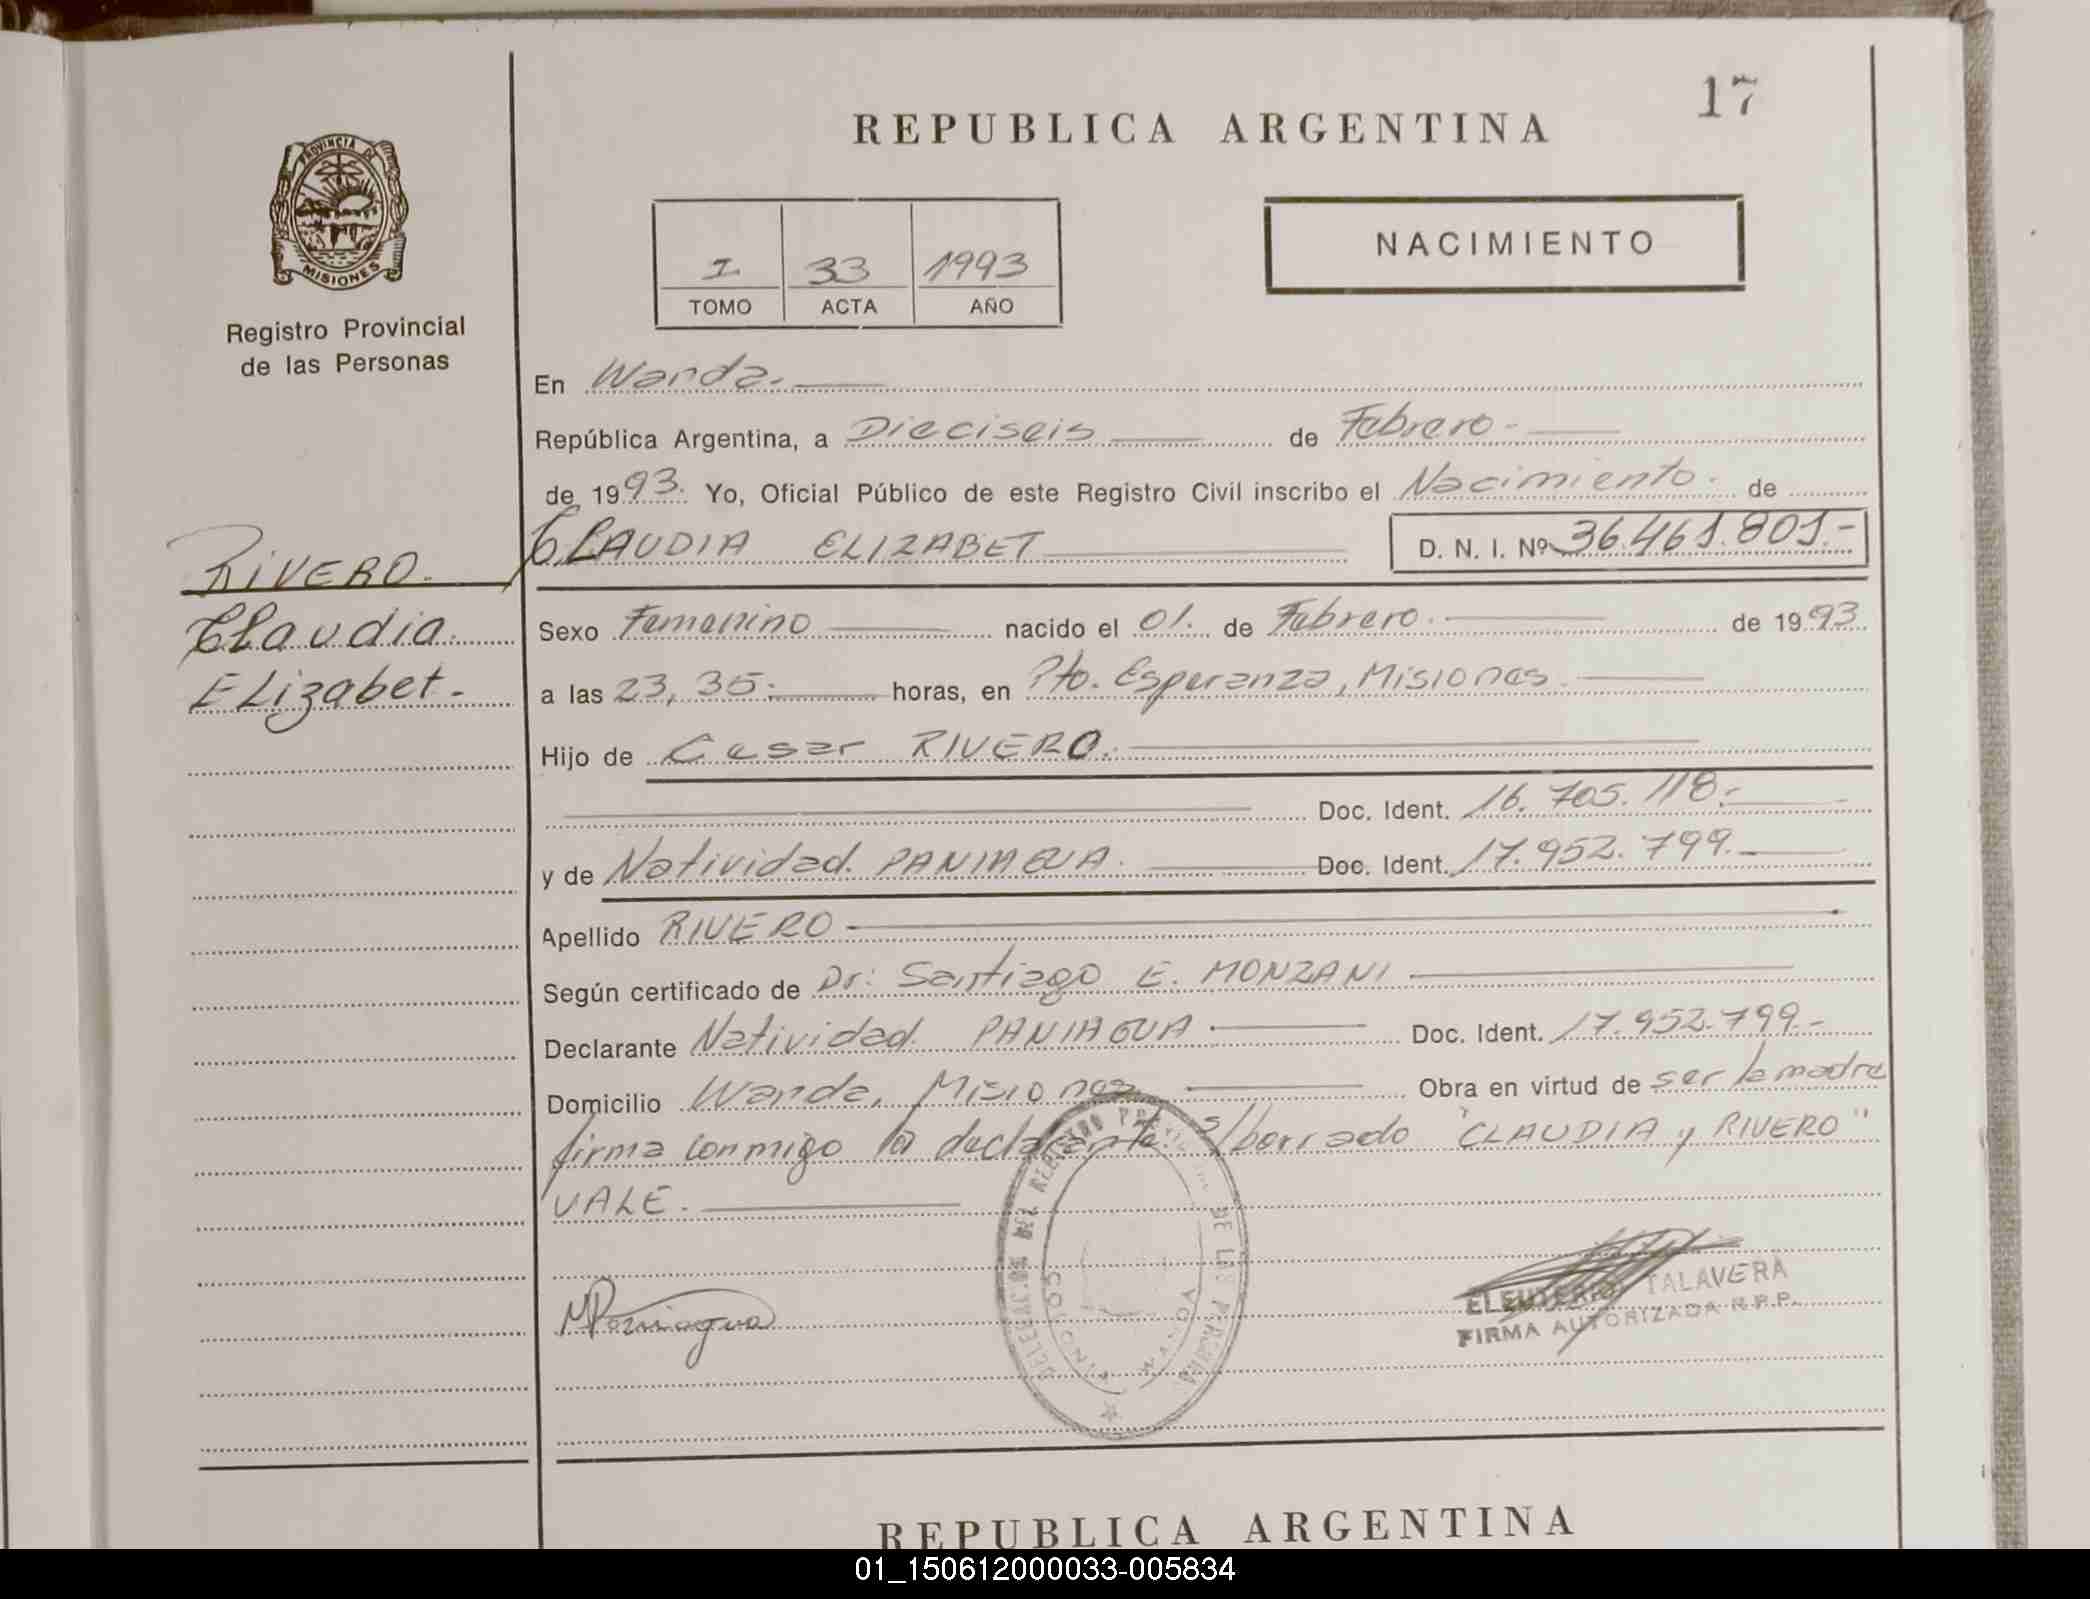 17
REPUBLICA ARGENTINA
PROVINCIA DE
MISIONES
Registro Provincial
de las Personas
I 33 1993
TOMO ACTA AÑO
NACIMIENTO
En Wanda.
República Argentina, a Dieciseis de Febrero.-
de 1993. Yo, Oficial Público de este Registro Civil inscribo el Nacimiento. de
CLAUDIA ELIZABET D. N. I. Nº 36.461.801.-
RIVERO.
Claudia
ELizabet.-
Sexo Femenino nacido el 01. de Febrero. de 1993
a las 23,35. horas, en Pto. Esperanza, Misiones.
Hijo de Cesar RIVERO.
Doc. Ident. 16.705.118.-
y de Natividad. PANIAGUA. Doc. Ident. 17.952.799.
Apellido RIVERO
Según certificado de Dr: Santiago E. MONZANI
Declarante Natividad. PANIAGUA Doc. Ident. 17.952.799.-
Domicilio Wanda, Misiones Obra en virtud de ser la madre
firma conmigo la declarante. s/borrado "CLAUDIA y RIVERO"
VALE.
DEL REGISTRO DE LAS
MISIONES
WANDA
MPaniagua
ELEUTERIO TALAVERA
FIRMA AUTORIZADA R.P.P.
REPUBLICA ARGENTINA
01_150612000033-005834